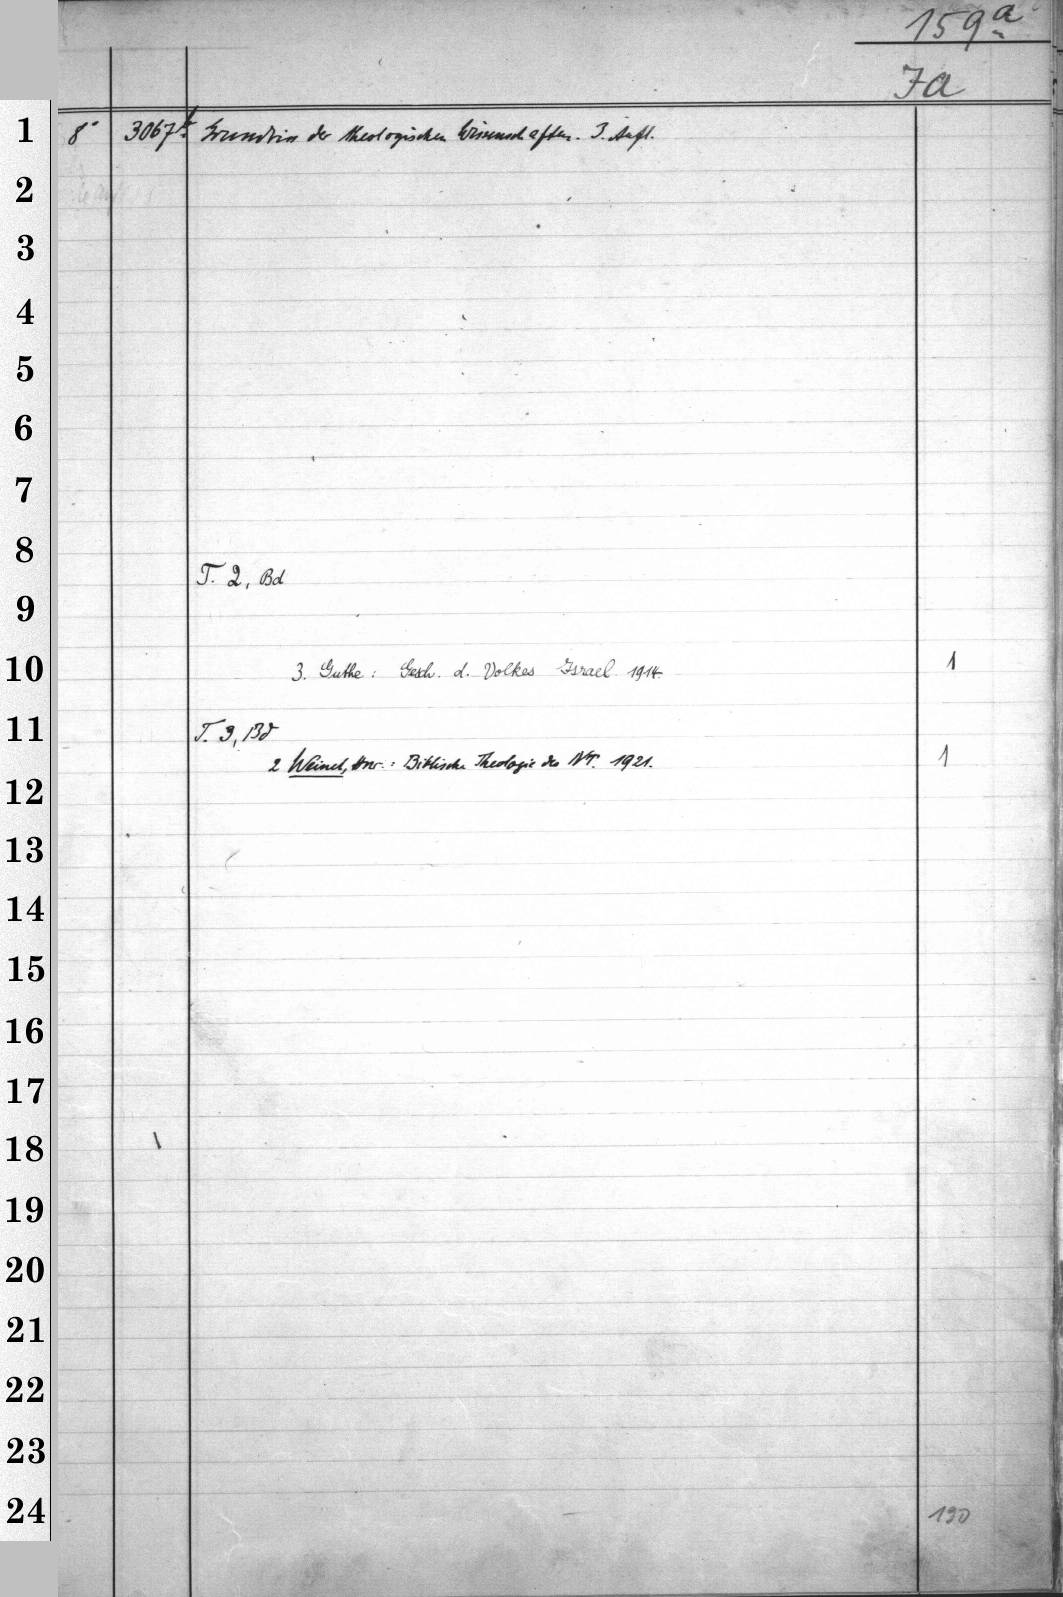 159a
Ja
1 8° 3067 Grundriss der theologischen Wissenschaften. 3. Aufl.
2
3
4
5
6
7
8
T. 2, Bd
9
10 3. Guthe: Gesch. d. Volkes Israel 1914. 1
11 T. 3, Bd
2 Weinel, : Biblische Theologie des NT. 1921. 1
12
13
14
15
16
17
18
19
20
21
22
23
24 190